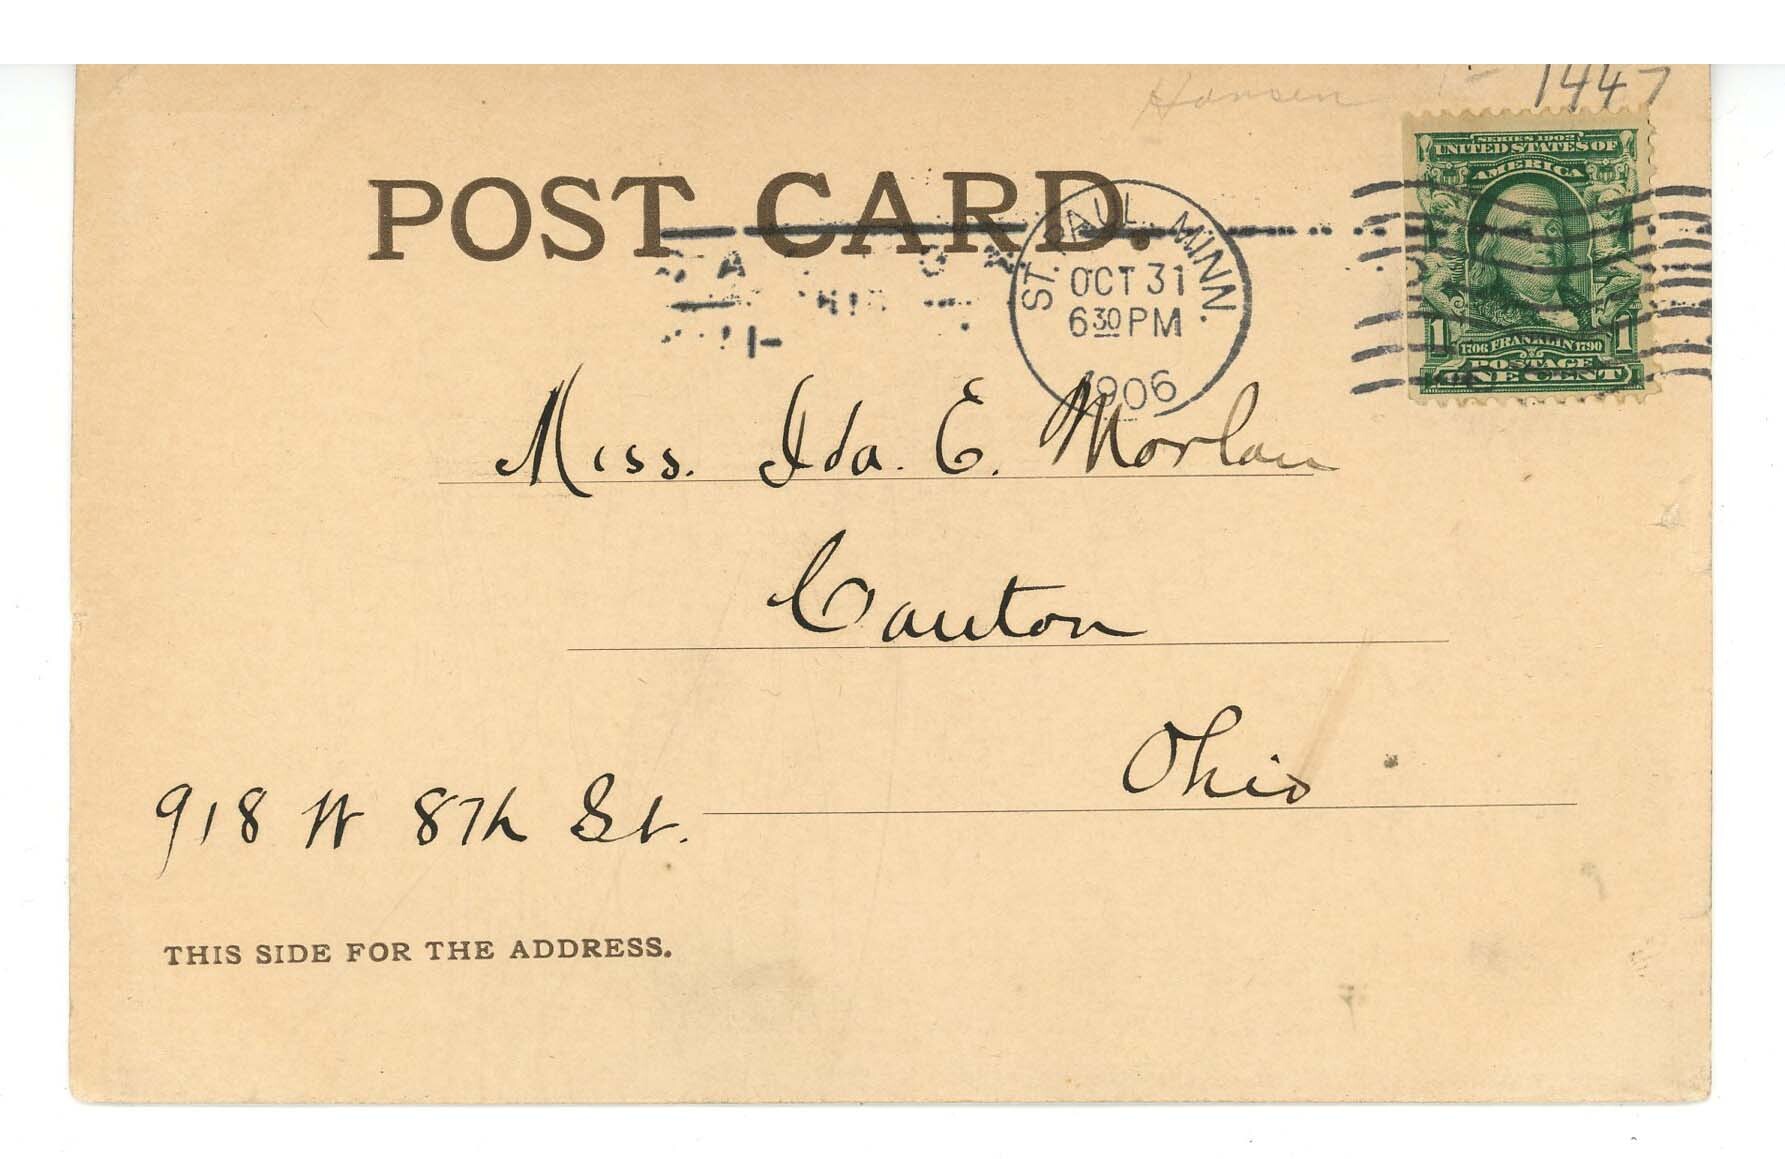 Hansen 1447
SERIES 1902
UNITED STATES OF
AMERICA
1 1706 FRANKLIN 1790 1
POSTAGE
ONE CENT
POST CARD.
ST. PAUL, MINN.
OCT 31
6 30 PM
1906
Miss. Ida. E. Morlan
Canton
Ohio
918 W 87h St.
THIS SIDE FOR THE ADDRESS.